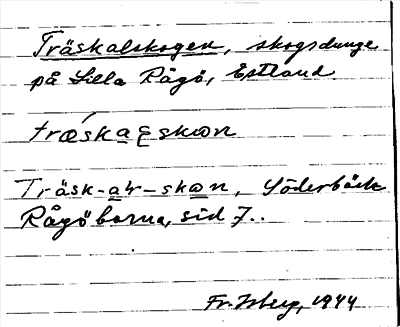 Träskalskogen, skogsdunge
på Lilla Rågö, Estland
Träsk-alr-skon, Söderbäck
Rågöborna, sid 7..
Fr. Isberg, 1944